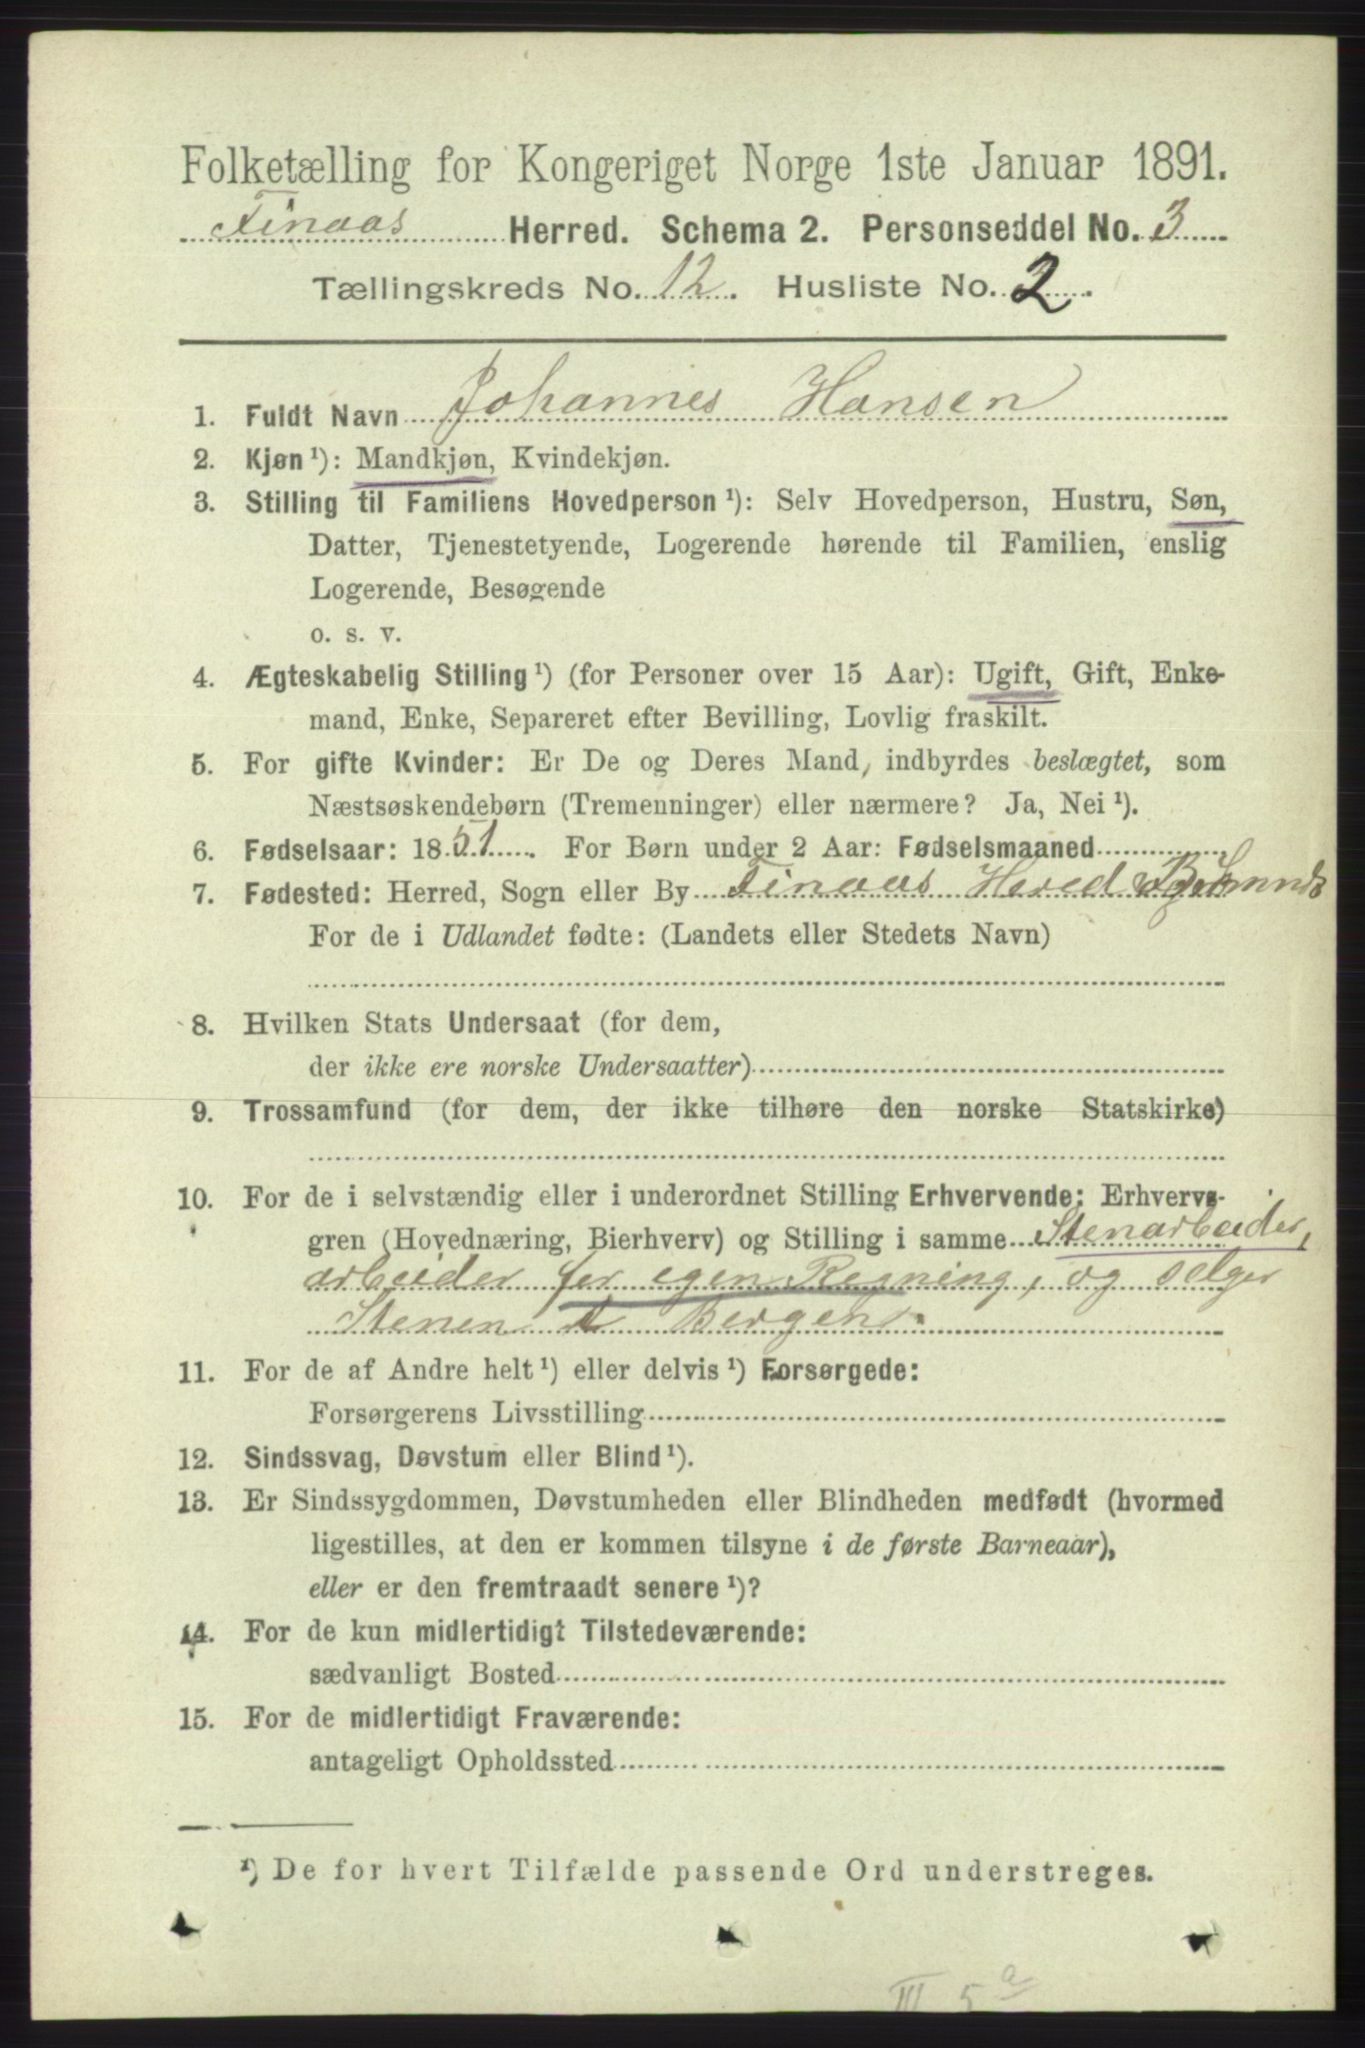 Folketælling for Kongeriget Norge 1ste Januar 1891.
Finaas Herred. Schema 2. Personseddel No. 3
Tællingskreds No. 12. Husliste No. 2.
1. Fuldt Navn Johannes Hansen
2. Kjøn ¹): Mandkjøn, Kvindekjøn.
3. Stilling til Familiens Hovedperson ¹): Selv Hovedperson, Hustru, Søn,
Datter, Tjenestetyende, Logerende hørende til Familien, enslig
Logerende, Besøgende
o. s. v.
4. Ægteskabelig Stilling ¹) (for Personer over 15 Aar): Ugift, Gift, Enke-
mand, Enke, Separeret efter Bevilling, Lovlig fraskilt.
5. For gifte Kvinder: Er De og Deres Mand indbyrdes beslægtet, som
Næstsøskendebørn (Tremenninger) eller nærmere? Ja, Nei ¹).
6. Fødselsaar: 1851. For Børn under 2 Aar: Fødselsmaaned
7. Fødested: Herred, Sogn eller By Finaas Hered
For de i Udlandet fødte: (Landets eller Stedets Navn)
8. Hvilken Stats Undersaat (for dem,
der ikke ere norske Undersaatter)
9. Trossamfund (for dem, der ikke tilhøre den norske Statskirke)
10. For de i selvstændig eller i underordnet Stilling Erhvervende: Erhvervs-
gren (Hovednæring, Bierhverv) og Stilling i samme Stenarbeider,
arbeider for egen Regning, og selger
Stenen i Bergen.
11. For de af Andre helt ¹) eller delvis ¹) Forsørgede:
Forsørgerens Livsstilling
12. Sindssvag, Døvstum eller Blind ¹).
13. Er Sindssygdommen, Døvstumheden eller Blindheden medfødt (hvormed
ligestilles, at den er kommen tilsyne i de første Barneaar),
eller er den fremtraadt senere ¹)?
14. For de kun midlertidigt Tilstedeværende:
sædvanligt Bosted
15. For de midlertidigt Fraværende:
antageligt Opholdssted
¹) De for hvert Tilfælde passende Ord understreges.
III 5 a